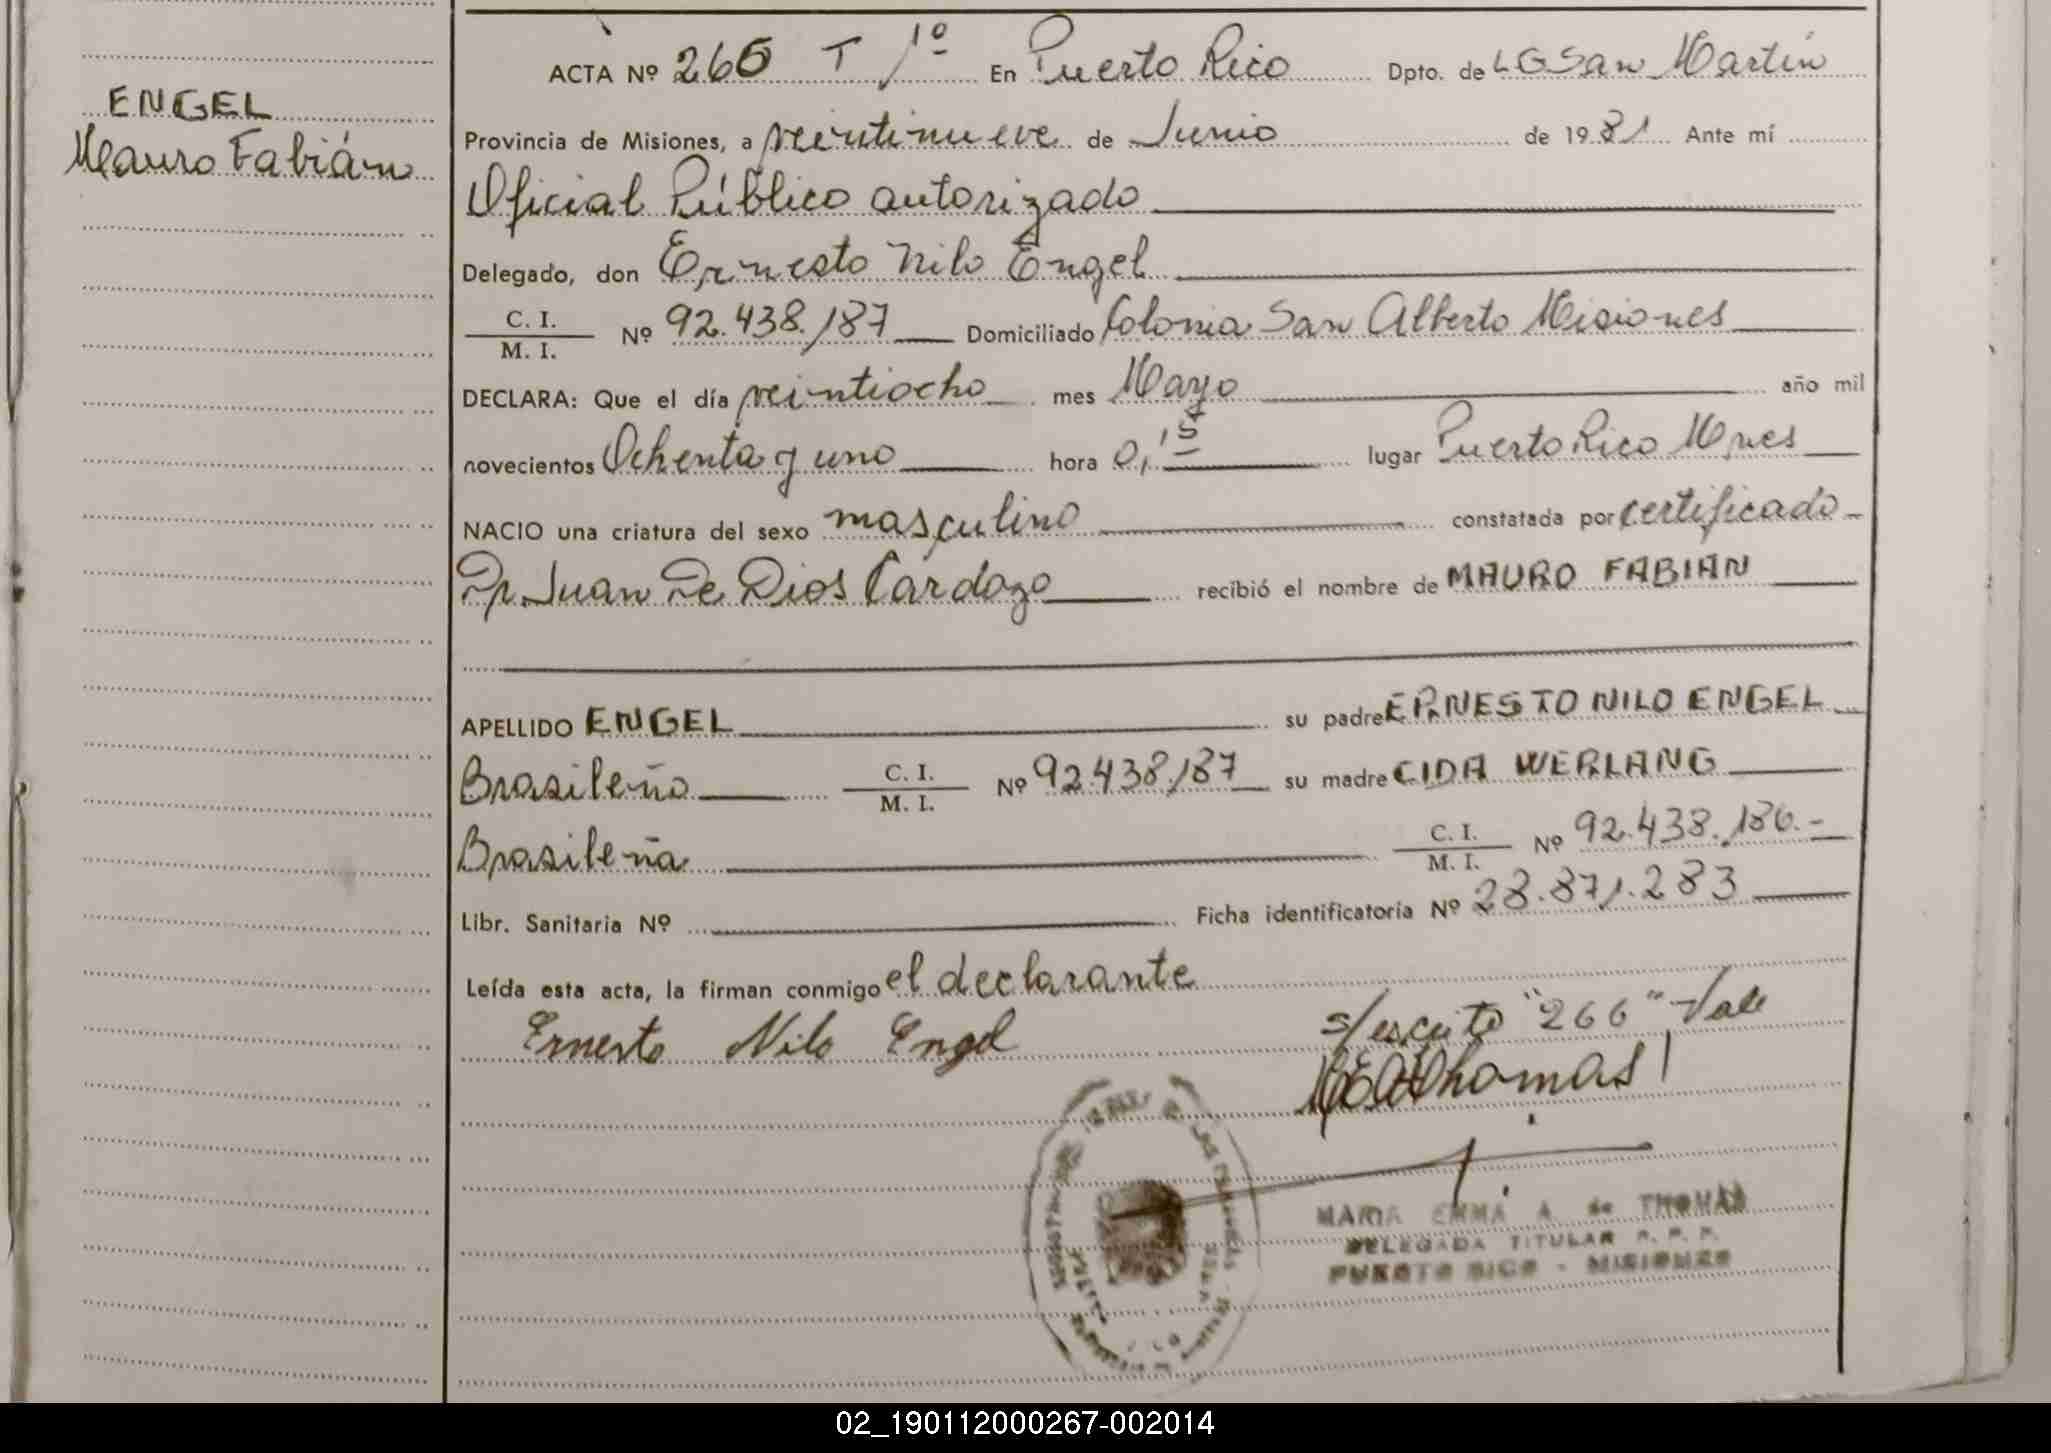 ENGEL
Mauro Fabián
ACTA Nº 266 T 1º En Puerto Rico Dpto. de LGSan Martín
Provincia de Misiones, a veintinueve de Junio de 1981 Ante mí
Oficial Público autorizado
Delegado, don Ernesto Nilo Engel
C. I.
M. I.
Nº 92.438.187 Domiciliado Colonia San Alberto Misiones
DECLARA: Que el día veintiocho mes Mayo año mil
novecientos Ochenta y uno hora 0,15 lugar Puerto Rico Mnes
NACIO una criatura del sexo masculino constatada por certificado
Dr. Juan De Dios Cardozo recibió el nombre de MAURO FABIAN
APELLIDO ENGEL su padre ERNESTO NILO ENGEL
Brasileño C. I. M. I. Nº 92.438.187 su madre CIDA WERLANG
Brasileña C. I. M. I. Nº 92.438.186.-
Libr. Sanitaria Nº Ficha identificatoria Nº 28.871.283
Leída esta acta, la firman conmigo el declarante
Ernesto Nilo Engel s/escrito "266" Vale
Thomas
MARIA EMMA A. de THOMAS
DELEGADA TITULAR R. P. P.
PUERTO RICO - MISIONES
02_190112000267-002014